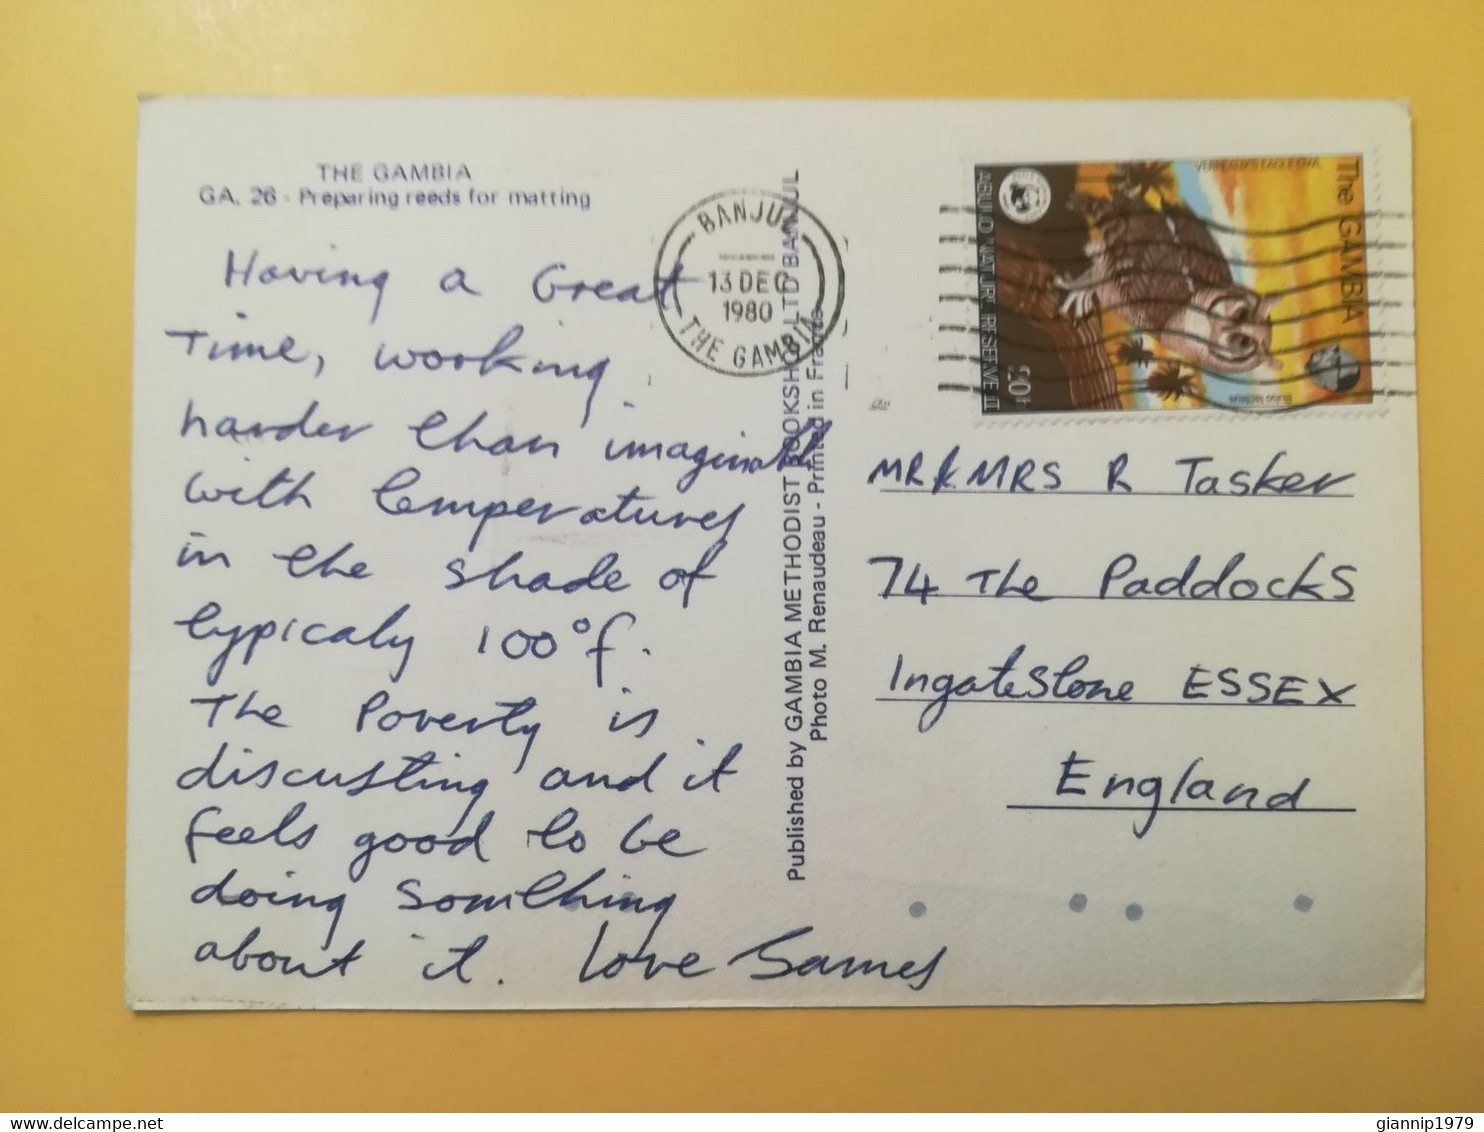 THE GAMBIA
GA. 26 - Preparing reeds for matting
Having a Great
Time, working
harder than imaginable
with temperatures
in the shade of
typicaly 100°f.
The Poverty is
discusting and it
feels good to be
doing something
about it. love James
Published by GAMBIA METHODIST BOOKSHOP LTD BANJUL
Photo M. Renaudeau - Printed in France
BANJUL
13 DEC
1980
THE GAMBIA
The GAMBIA
VERREAUX'S EAGLE OWL
Bubo lacteus
ABUKO NATURE RESERVE II
20b
MR & MRS R Tasker
74 The Paddocks
Ingatestone ESSEX
England
giannip1979